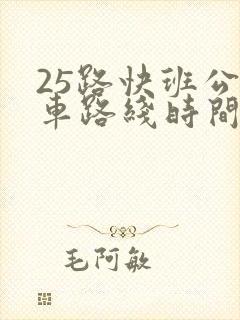 25路快班公
車路綫時間
毛阿敏